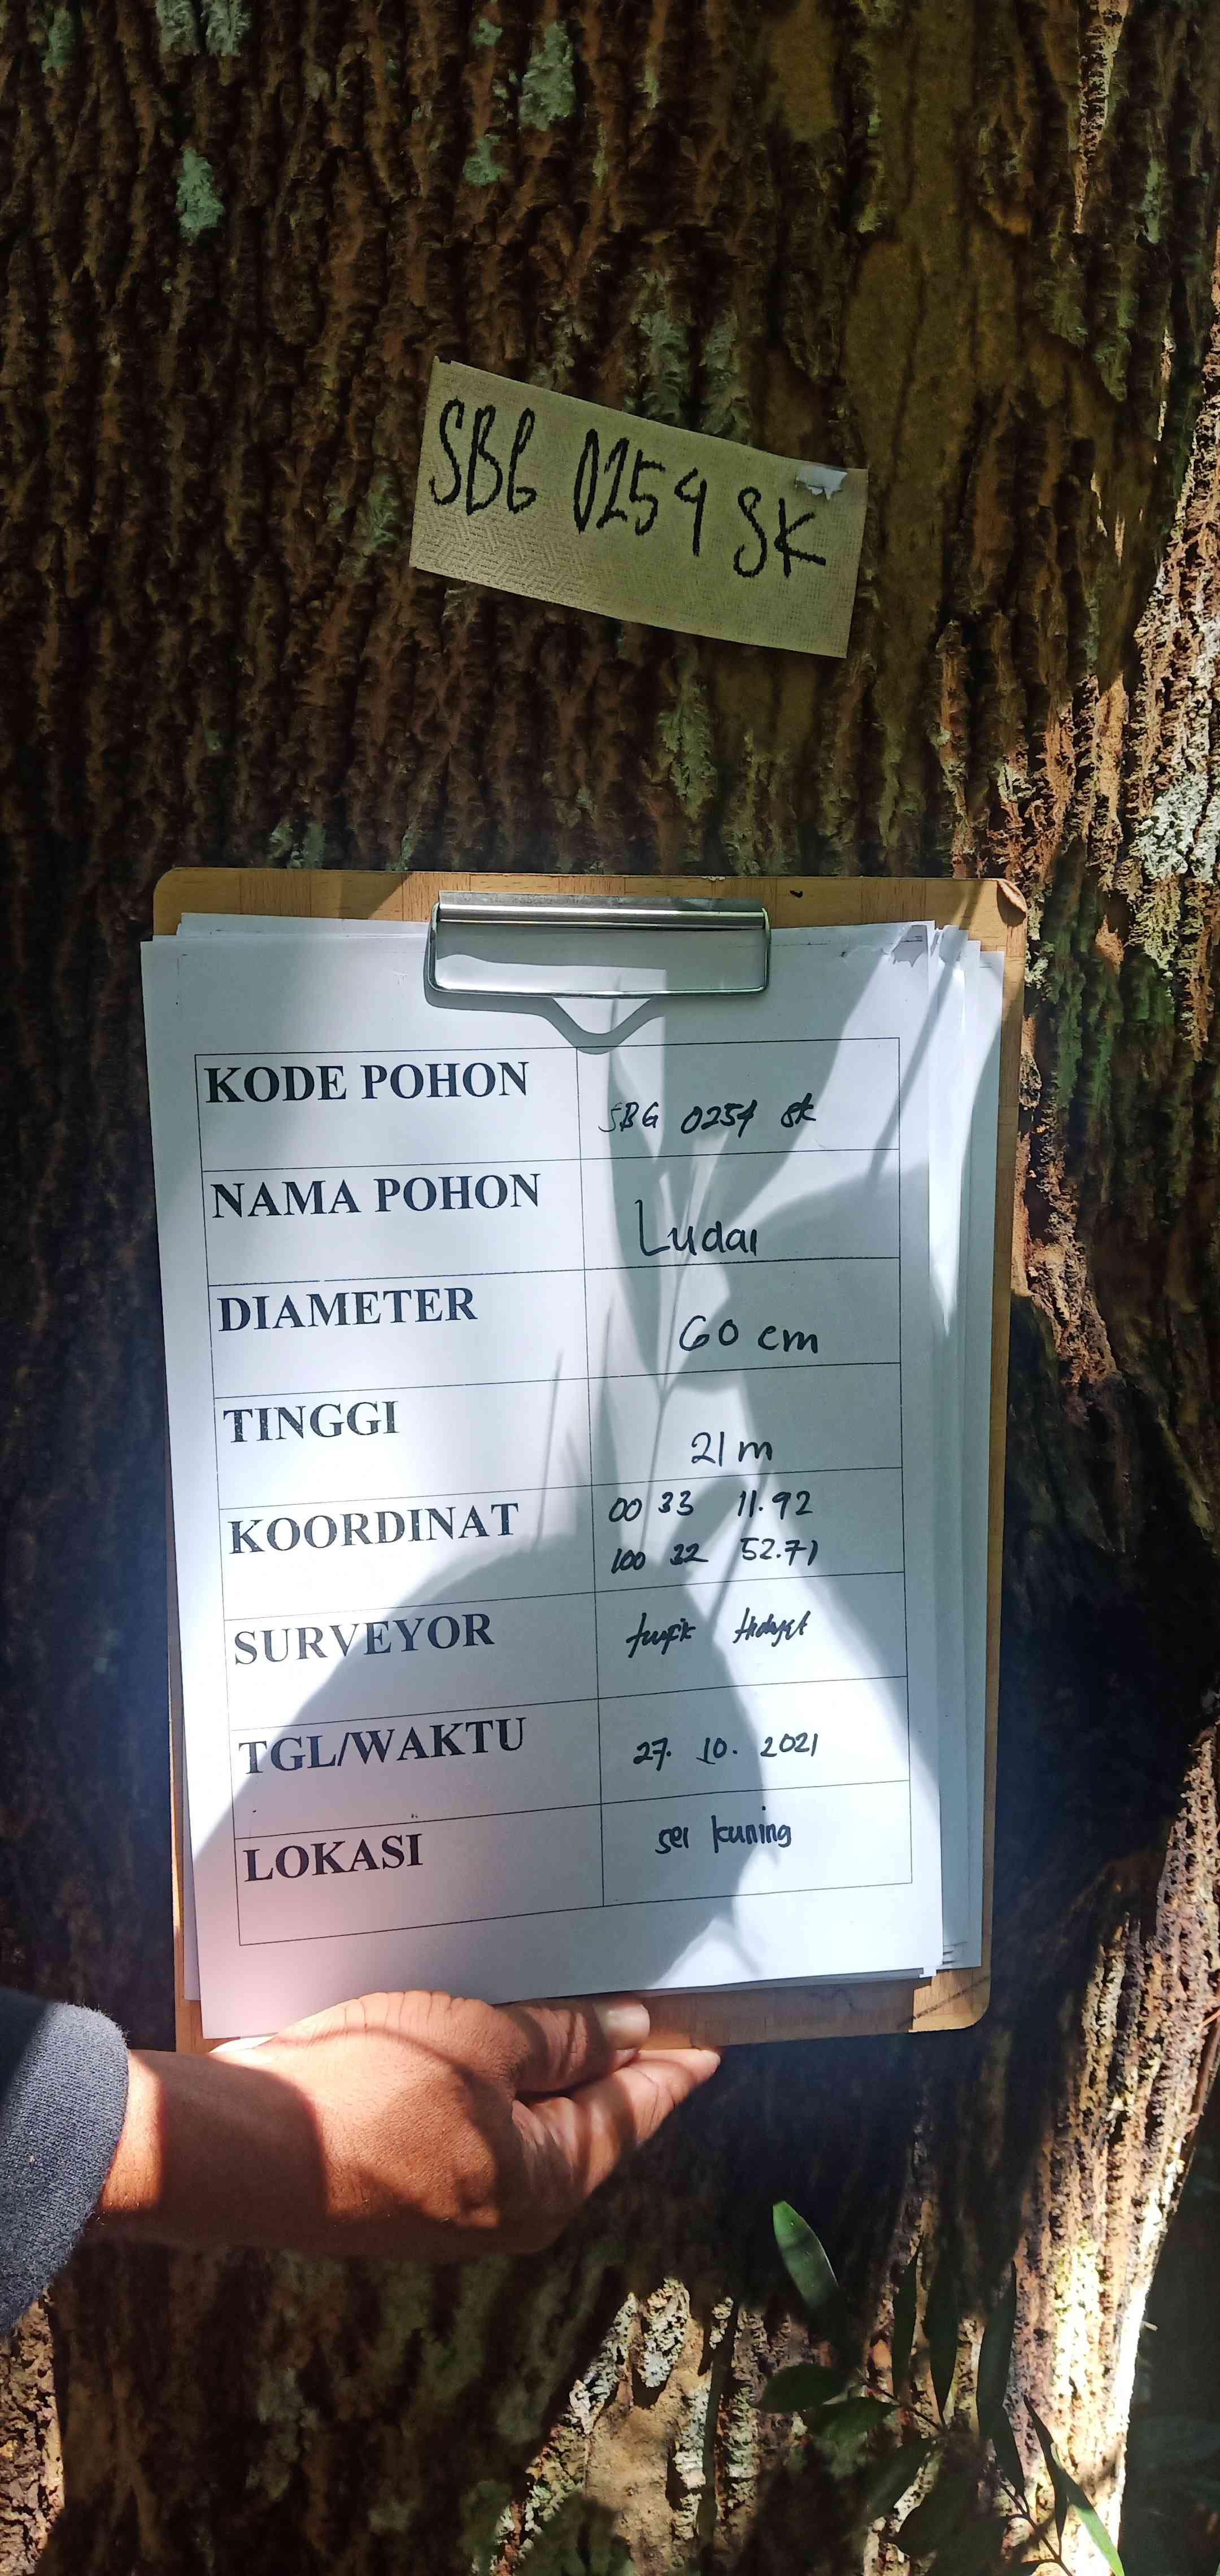 SBG 0254 SK
KODE POHON
SBG 0254 SK
NAMA POHON
Ludai
DIAMETER
60 cm
TINGGI
21 m
KOORDINAT
00 33 11.92
100 32 52.71
SURVEYOR
Taufik Hidayat
TGL/WAKTU
27. 10. 2021
LOKASI
sei kuning